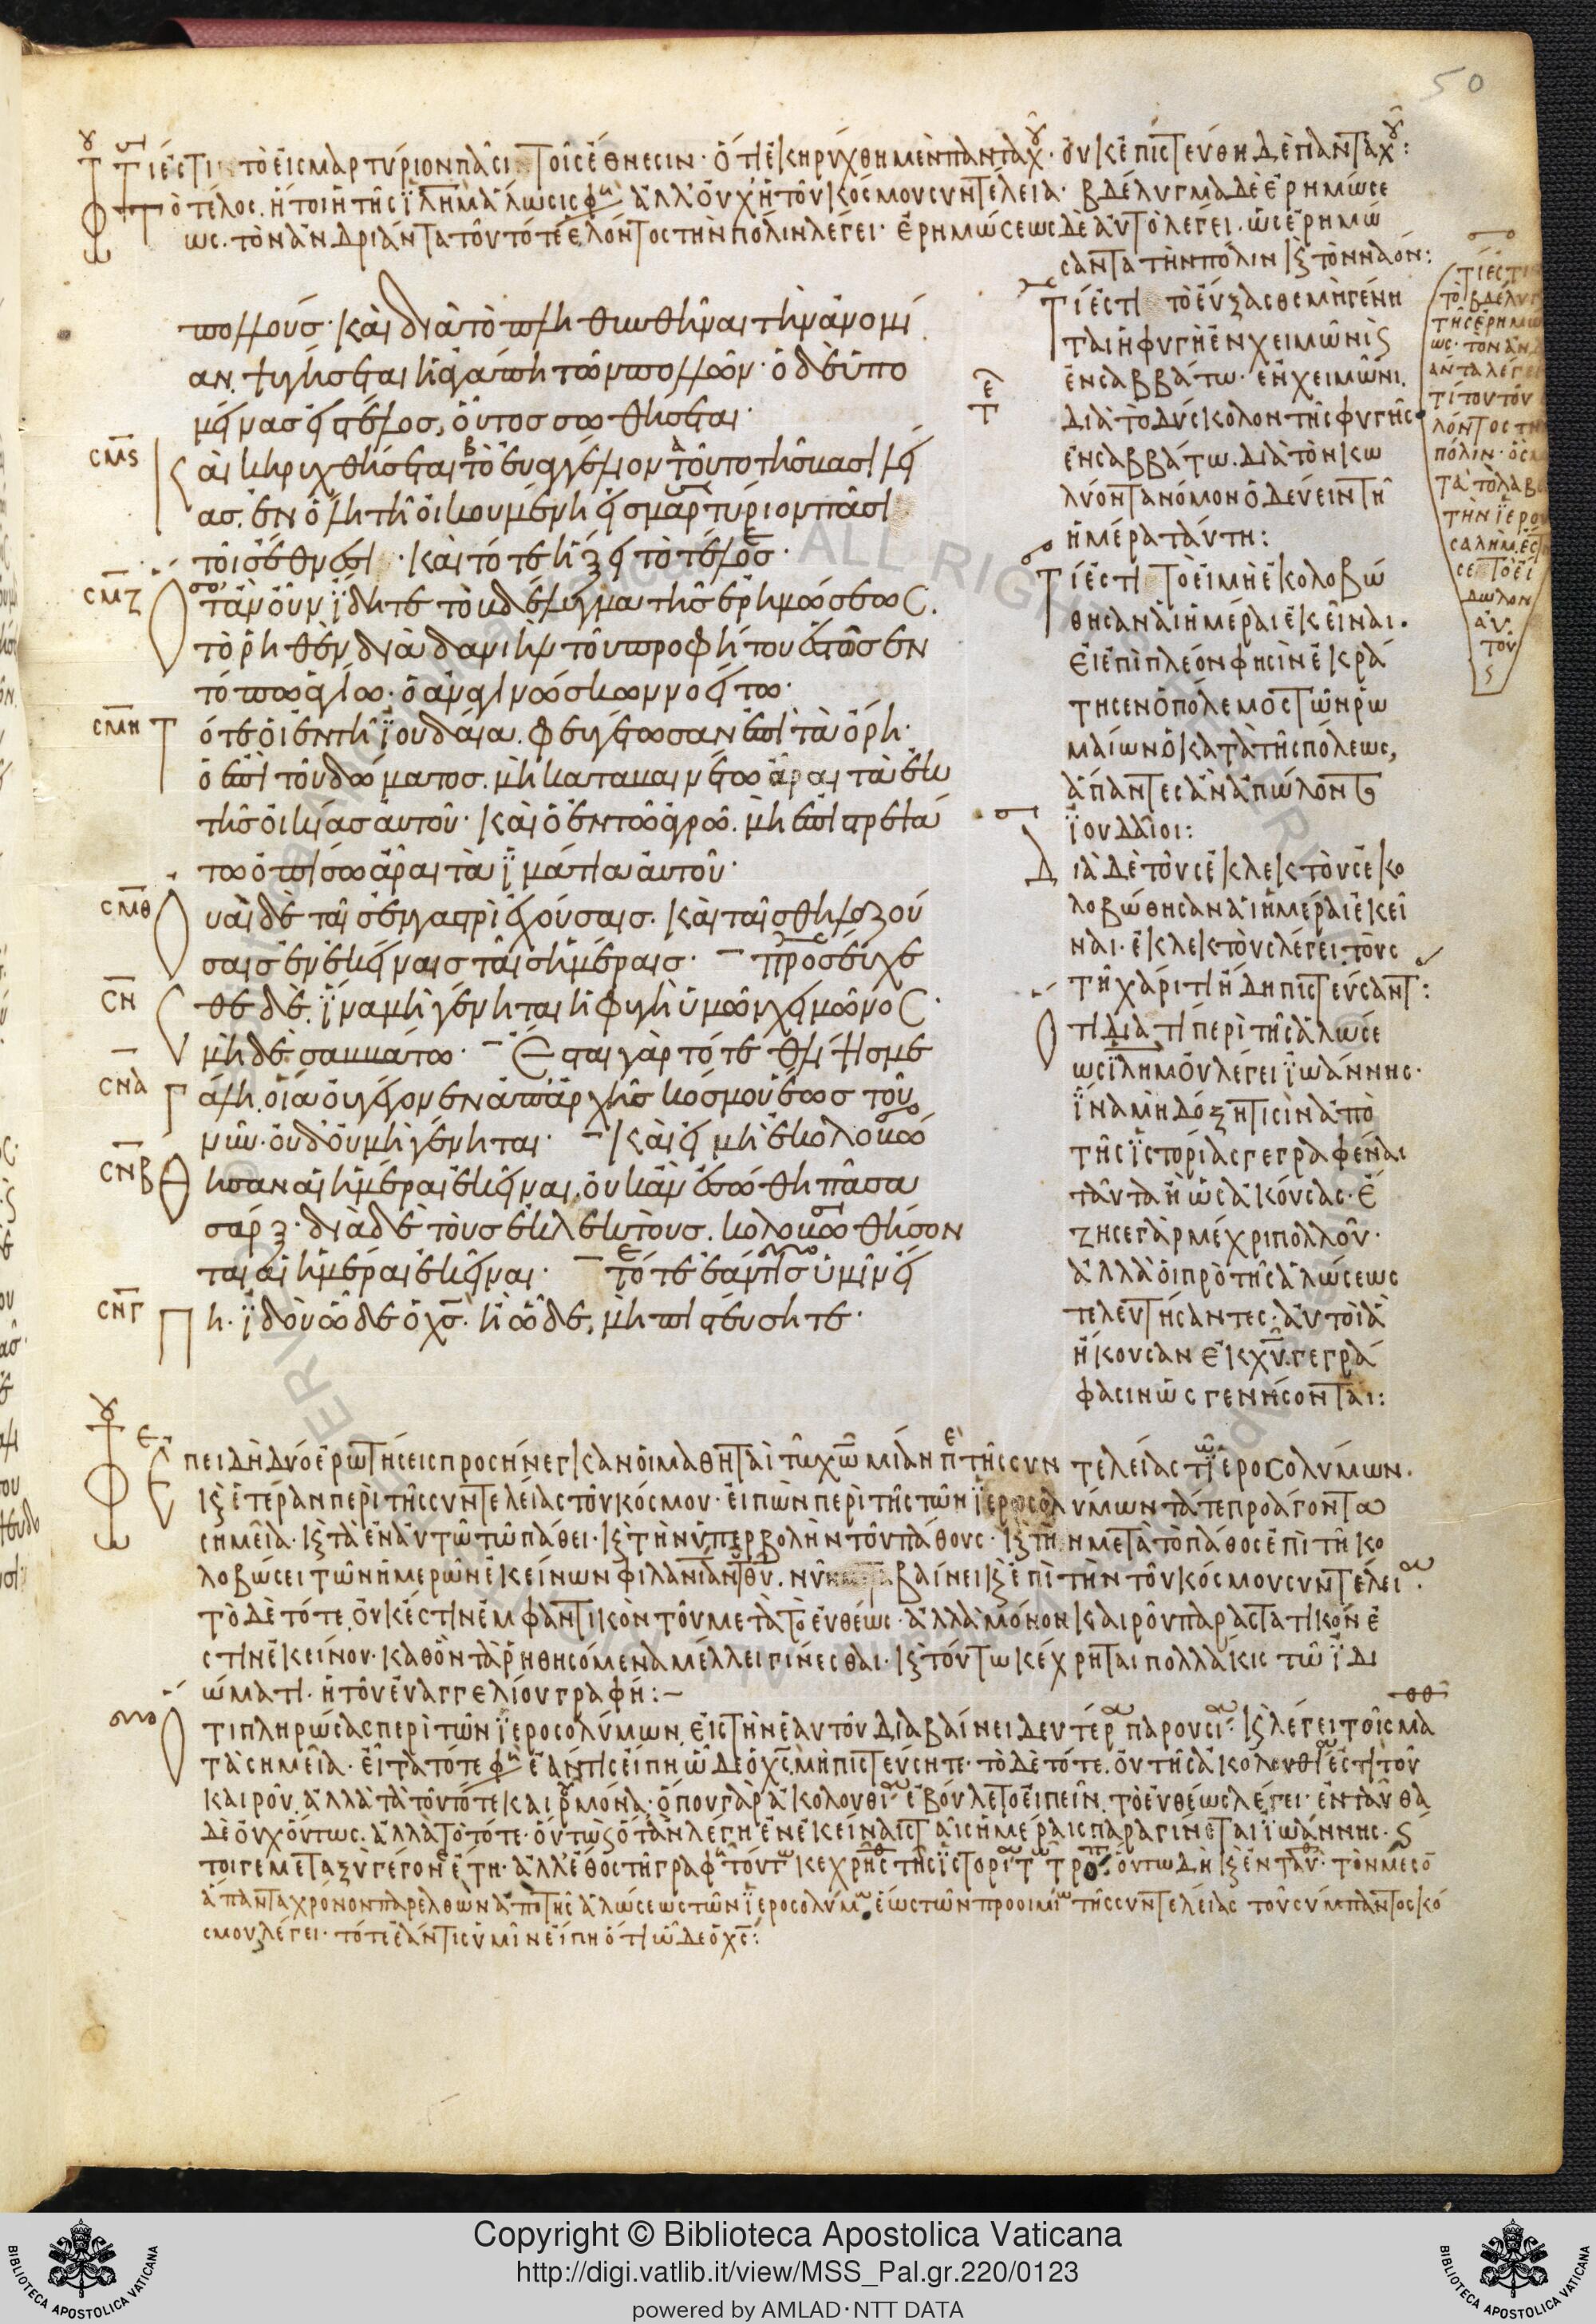 50
Τί ἐστι τὸ εἰς μαρτύριον πᾶσι τοῖς ἔθνεσιν· ὅτι ἐκηρύχθη μὲν πανταχοῦ· οὐκ ἐπιστεύθη δὲ πανταχοῦ:
Τὸ τέλος· ἤτοι ἡ τῆς ϊλημ ἁλώσις φη ἀλλ' οὐχ' ἡ τοῦ κόσμου συντέλεια· βδέλυγμα δὲ ἐρημώσε
ως. τὸν ἀνδριάντα τοῦ τότε ἑλόντος τὴν πόλιν λέγει· ἐρημώσεως δὲ αὐτὸ λέγει. ὡς ἐρημώ
σαντα τὴν πόλιν κ τὸν ναόν:
πολλούς· καὶ διὰ τὸ πληθυνθῆναι τὴν ἀνομί
αν. ψυγήσεται ἡ ἀγάπη τῶν πολλῶν· ὁ δὲ ὑπο
μείνας εἰς τέλος, οὗτος σωθήσεται·
ϲμϛ Καὶ κηρυχθήσεται τὸ εὐαγγέλιον τοῦτο τῆς βασιλεί
ας. ἐν ὅλη τῆ οἰκουμένη εἰς μαρτύριον πᾶσι
τοῖς ἔθνεσι · καὶ τότε ἥξει τὸ τέλος·
ϲμζ Ὅταν οὖν ϊδητε τὸ βδέλυγμα τῆς ἐρημώσεως.
τὸ ῥηθὲν διὰ δανιὴλ τοῦ προφήτου ἑστὼς ἐν
τόπω ἁγίω· ὁ ἀναγινώσκων νοείτω·
ϲμη Τότε οἱ ἐν τῆ ϊουδαία. φευγέτωσαν ἐπὶ τὰ ὄρη·
ὁ ἐπὶ τοῦ δώματος. μὴ καταβαινέτω ἆραι τὰ ἐκ
τῆς οἰκίας αὐτοῦ· καὶ ὁ ἐν τῶ ἀγρῶ. μὴ ἐπιστρεψά
τω ὀπίσω ἆραι τὰ ϊμάτια αὐτοῦ·
ϲμθ Οὐαὶ δὲ ταῖς ἐν γαστρὶ ἐχούσαις· καὶ ταῖς θηλαζού
σαις ἐν ἐκείναις ταῖς ἡμέραις· προσεύχε
ϲν σθε δὲ. ϊνα μὴ γένηται ἡ φυγὴ ὑμῶν χειμῶνος·
μὴ δὲ σαββάτω· Ἔσται γὰρ τότε θλίψις με
ϲνα Γάλη. οἵα οὐ γέγονεν ἀπ' ἀρχῆς κόσμου ἕως τοῦ
νῦν· οὐδ' οὐ μὴ γένηται· καὶ εἰ μὴ ἐκολοβώ
ϲνβ Θησαν αἱ ἡμέραι ἐκεῖναι. οὐκ ἂν ἐσώθη πᾶσα
σάρξ· διὰ δὲ τοὺς ἐκλεκτοὺς. κολοβωθήσον
ται αἱ ἡμέραι ἐκεῖναι· τότε ἐάν τις ὑμῖν εἴ
ϲνγ Πη. ϊδοὺ ὧδε ὁ χς. ἢ ὧδε, μὴ πιστεύσητε·
Τί ἐστι τὸ εὔξασθε μὴ γένη
ται ἡ φυγὴ ἐν χειμῶνι ϛ
ἐν σαββάτω· ἐν χειμῶνι.
διὰ τὸ δύσκολον τῆς φυγῆς·
ἐν σαββάτω. διὰ τὸν κω
λύοντα νόμον ὁδεύειν τῆ
ἡμέρα ταύτη:
Τί ἐστι τὸ εἰ μὴ ἐκολοβώ
θησαν αἱ ἡμέραι ἐκεῖναι.
εἰ ἐπὶ πλέον φησὶν ἐκρά
τησεν ὁ πόλεμος τῶν ρω
μαίων ὁ κατὰ τῆς πόλεως,
ἅπαντες ἂν ἀπώλοντο
ϊουδαῖοι:
Διὰ δὲ τοὺς ἐκλεκτοὺς ἐκο
λοβώθησαν αἱ ἡμέραι ἐκεῖ
ναι· ἐκλεκτοὺς λέγει τοὺς
τῆ χάριτι ἤδη πιστεύσαντ:
Ὅτι διατί περὶ τῆς ἁλώσε
ως ϊλημ οὐ λέγει ϊωάννης·
ϊνα μὴ δόξη τισὶν ἀπὸ
τῆς ϊστορίας γεγραφέναι
ταῦτα ἢ ὡς ἀκούσας· ἔ
ζησε γὰρ μέχρι πολλοῦ·
ἀλλὰ οἱ πρὸ τῆς ἁλώσεως
τελευτήσαντες· αὐτοὶ ἃ
ἤκουσαν ἐκ χυ. γεγρά
φασιν ὡς γενήσονται:
Τί ἐστι
τὸ βδέλυγ
τῆς ἐρημώ
ως· τὸν ἀνδ
άντα λέγε
τί του τὸν
λόντος τὴ
πόλιν·
τα τὸ λαβε
τὴν ϊερου
σαλὴμ.
δωλον
αὐ
τοῦ
Ἐπειδὴ δύο ἐρωτήσεις προσήνεγκαν οἱ μαθηταὶ τῶ χω μίαν π τῆς συντελείας τῶν ϊεροσολύμων.
κ ἑτέραν περὶ τῆς συντελείας τοῦ κόσμου· εἰπὼν περὶ τῆς τῶν ϊεροσολύμων τά τε προάγοντα
σημεῖα· κ τὰ ἐν αὐτῶ τῶ πάθει· κ τὴν ὑπερβολὴν τοῦ πάθους· κ τὴν μετὰ τὸ πάθος ἐπὶ τῆ κο
λοβώσει τῶν ἡμερῶν ἐκείνων φιλανίαν τοῦ θυ. νῦν βαίνει κ ἐπὶ τὴν τοῦ κόσμου συντέλεια.
τὸ δὲ τότε. οὐκ ἐστὶν ἐμφαντικὸν τοῦ μετὰ τὸ εὐθέως· ἀλλὰ μόνον καιροῦ παραστατικόν ἐ
στιν ἐκείνου· καθ' ὃν τὰ ῥηθησόμενα μέλλει γίνεσθαι· κ τούτω κέχρηται πολλάκις τῶ ϊδι
ώματι· ἡ τοῦ εὐαγγελίου γραφή:—
Ὅτι πληρώσας περὶ τῶν ϊεροσολύμων, εἰς τὴν ἑαυτοῦ διαβαίνει δευτέρα παρουσία· κ λέγει τοῖς μαθθ
τὰ σημεῖα· εἶτα τότε φη ἐάν τις εἴπη ὧδε ὁ χς. μὴ πιστεύσητε· τὸ δὲ τότε. οὐ τῆς ἀκολουθία ἐστὶ τοῦ
καιροῦ. ἀλλὰ τὰ τούτότε καιροῦ μόνα· ὅπου γὰρ ἀκολουθία ἐβούλετο εἰπεῖν. τὸ εὐθέως λέγει· ἐνταῦθα
δὲ οὐχ οὕτως. ἀλλὰ τὸ τότε· οὕτως ὅταν λέγη ἐν ἐκείναις ταῖς ἡμέραις παραγίνεται ϊωάννης· ϛ
τοιγε μεταξὺ γέγονεν ἔτη· ἀλλ' ἔθος τῆ γραφη τούτω κεχρῆσθ τῆς ϊστορι τω τροπ· οὕτω δὴ κ ἐνταυθ· τὸν μεσο
ἅπαντα χρόνον παρελθὼν ἀπὸ τῆς ἁλώσεως τῶν ϊεροσολύμω ἕως τῶν προοιμίω τῆς συντελείας τοῦ σύμπαντος κό
σμου λέγει· τότε ἐάν τις ὑμῖν εἴπη ὅτι ὧδε ὁ χς:
Copyright © Biblioteca Apostolica Vaticana
http://digi.vatlib.it/view/MSS_Pal.gr.220/0123
powered by AMLAD·NTT DATA
BIBLIOTECA APOSTOLICA VATICANA
BIBLIOTECA APOSTOLICA VATICANA